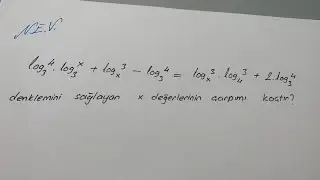 N.E.V.
log₃⁴ . log₃ˣ + logₓ³ − log₃⁴ = logₓ³ . log₄³ + 2.log₃⁴
denklemini sağlayan x değerlerinin çarpımı kaçtır?